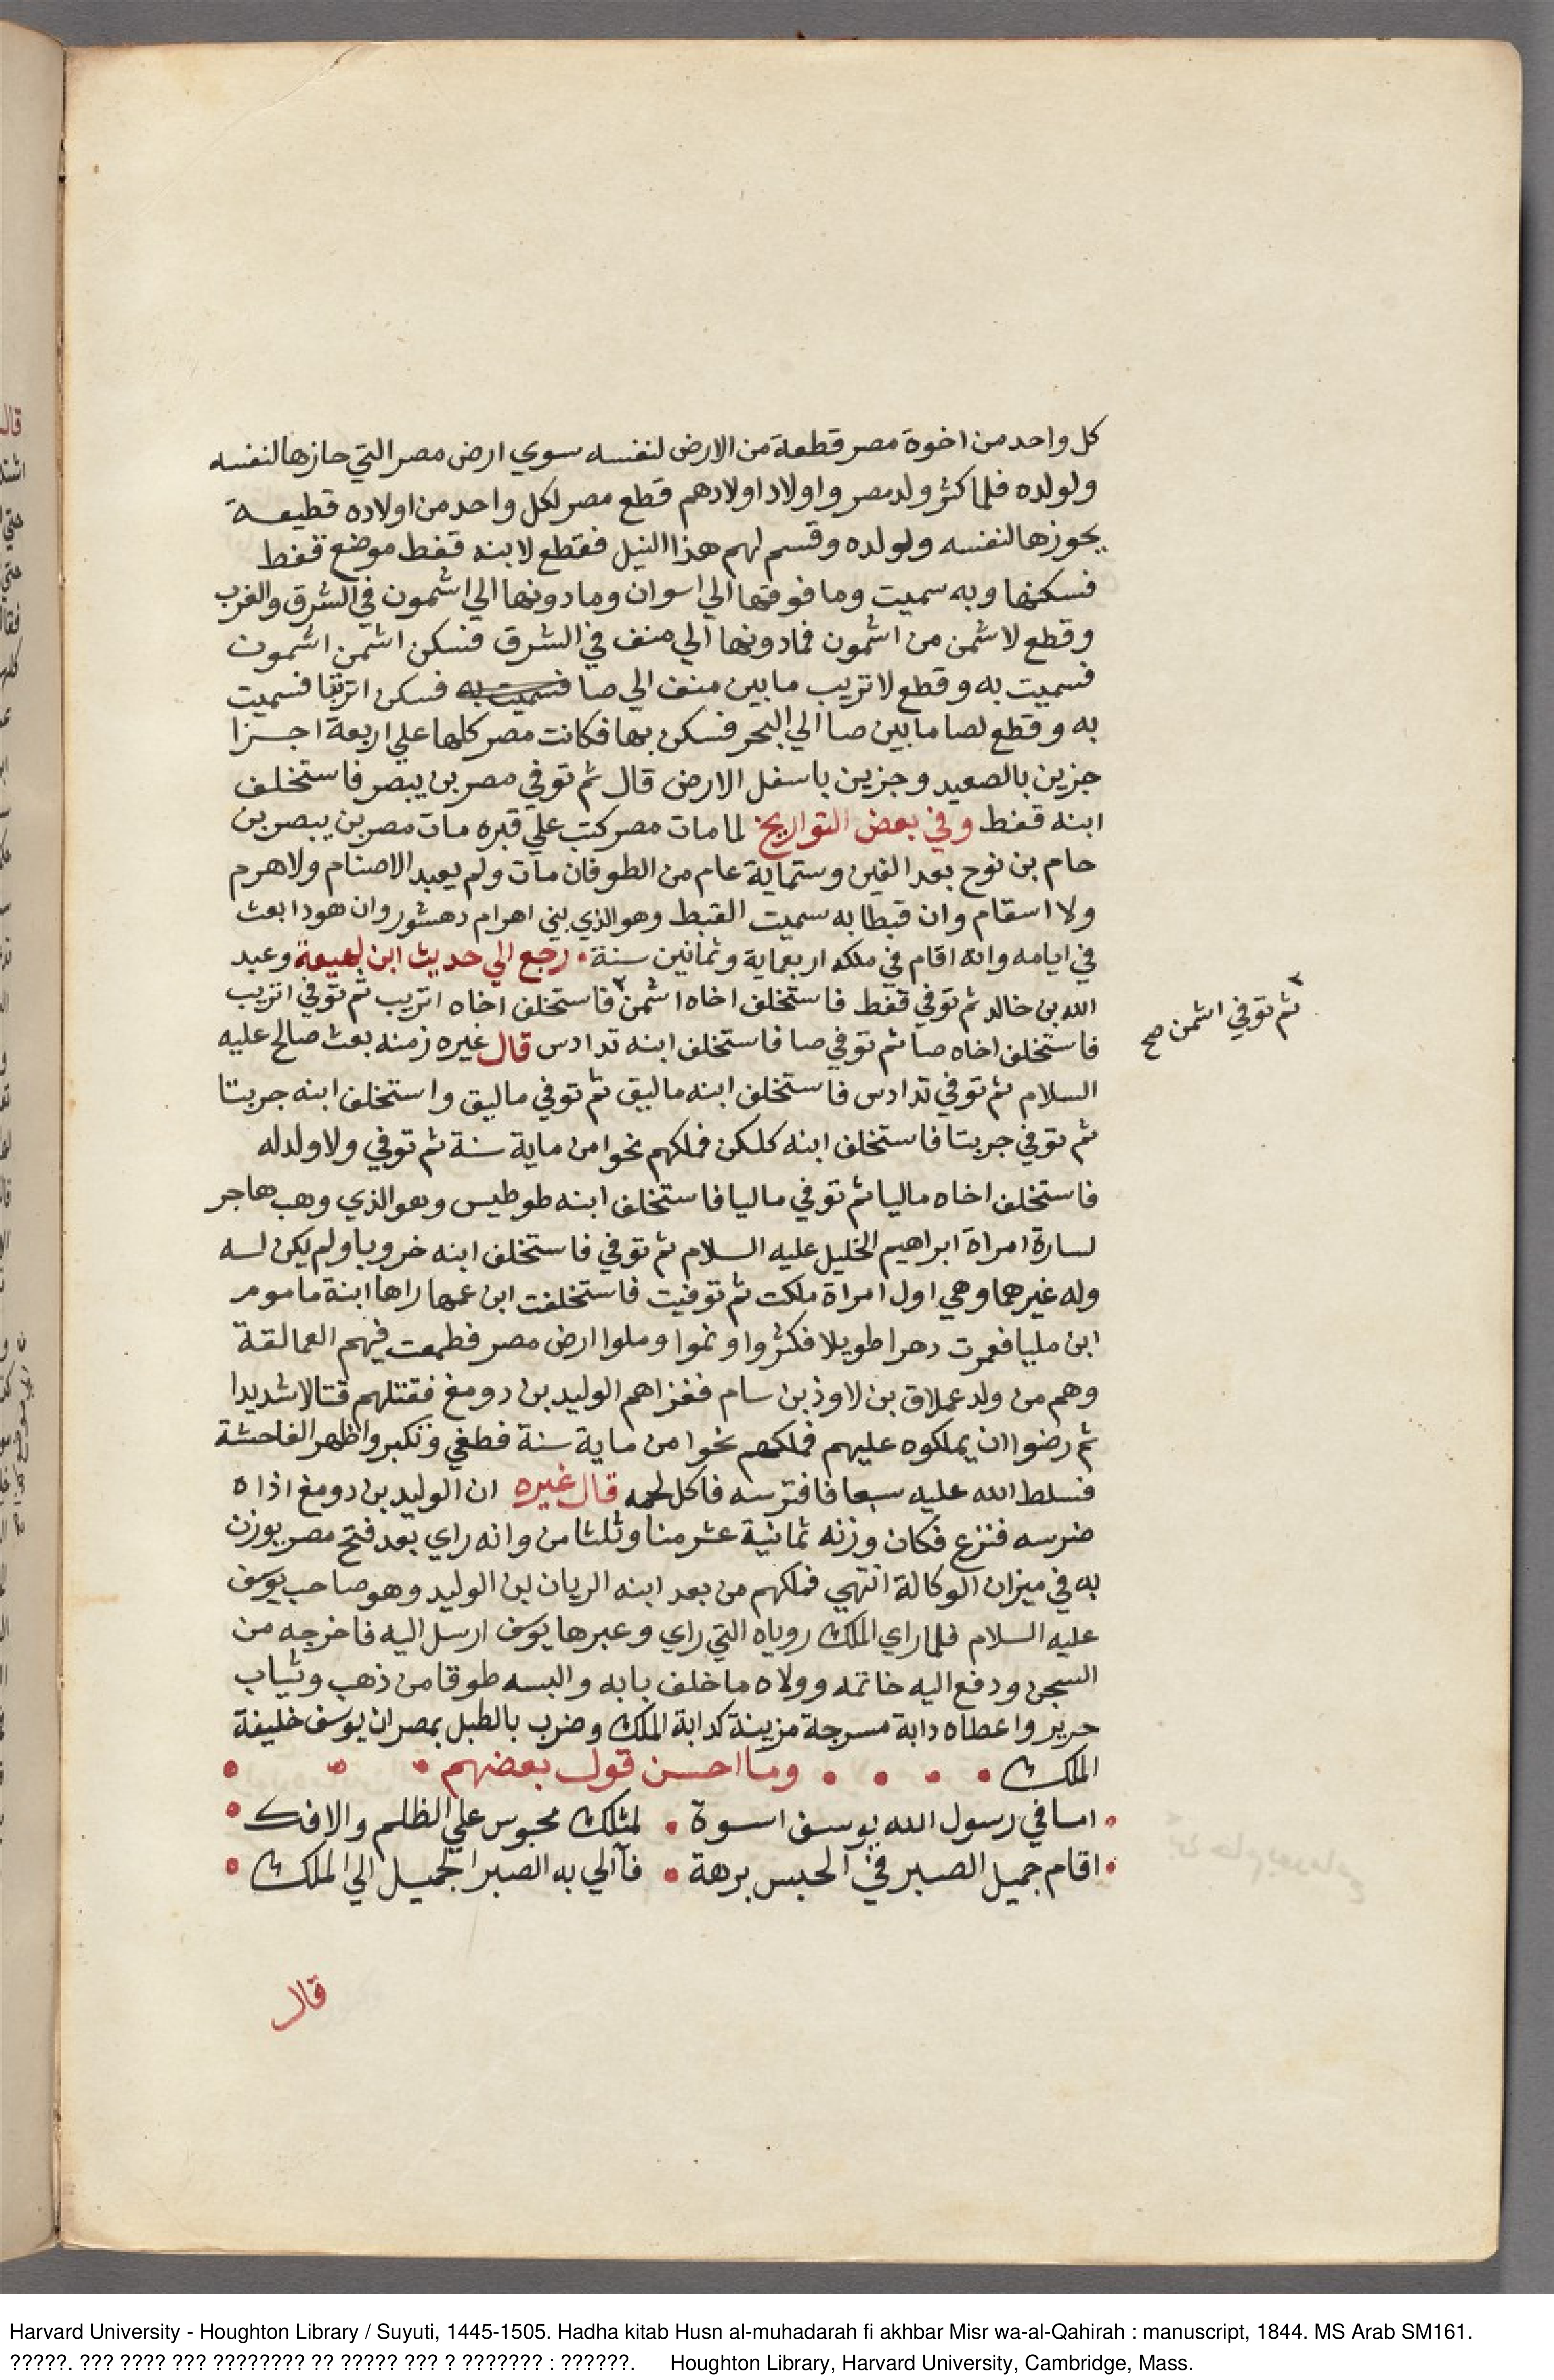 كل واحد من اخوة مصر قطعة من الارض لنفسه سوي ارض مصر التي حازها لنفسه
ولولده فلما كثر ولد مصر واولاد اولادهم قطع مصر لكل واحد من اولاده قطيعة
يحوزها لنفسه ولولده وقسم لهم هذا النيل فقطع لابنه قفط موضع قفط
فسكنها وبه سميت وما فوقها الي اسوان وما دونها الي اشمون في الشرق والغرب
وقطع لاشمن من اشمون فما دونها الي منف في الشرق فسكن اشمن اشمون
فسميت به وقطع لاتريب ما بين منف الي صا فسميت به فسكن اتريبا فسميت
به وقطع لصا ما بين صا الي البحر فسكن بها فكانت مصر كلها علي اربعة اجزا
جزين بالصعيد وجزين باسفل الارض قال ثم توفي مصر بن بيصر فاستخلف
ابنه قفط وفي بعض التواريخ لما مات مصر كتب علي قبره مات مصر بن بيصر بن
حام بن نوح بعد الفين وستماية عام من الطوفان مات ولم يعبد الاصنام ولا هرم
ولا اسقام وان قبطا به سميت القبط وهو الذي بني اهرام دهشور وان هودا بعث
في ايامه وانه اقام في ملكه اربعماية وثمانين سنة • رجع الي حديث ابن لهيعة وعبد
الله بن خالد ثم توفي قفط فاستخلف اخاه اشمن ٢ فاستخلف اخاه اتريب ثم توفي اتريب
٢ ثم توفي اشمن صح
فاستخلف اخاه صا ثم توفي صا فاستخلف ابنه تدادس قال غيره زمنه بعث صالح عليه
السلام ثم توفي تدادس فاستخلف ابنه ماليق ثم توفي ماليق واستخلف ابنه جربتا
ثم توفي جربتا فاستخلف ابنه كلكن فملكهم نحوا من ماية سنة ثم توفي ولا ولد له
فاستخلف اخاه ماليا ثم توفي ماليا فاستخلف ابنه طوطيس وهو الذي وهب هاجر
لسارة امراة ابراهيم الخليل عليه السلام ثم توفي فاستخلف ابنه خروبا ولم يكن له
وله غيرهما وهي اول امراة ملكت ثم توفيت فاستخلفت ابن عمها راها ابنة مامومر
ابن ملييا فعمرت دهرا طويلا فكثروا ونموا وملوا ارض مصر فطمعت فيهم العمالقة
وهم من ولد عملاق بن لاوذ بن سام فغزاهم الوليد بن دومغ فقتلهم قتالا شديدا
ثم رضوا ان يملكوه عليهم فملكهم نحوا من ماية سنة فطغي وتكبر واظهر الفاحشة
فسلط الله عليه سبعا فافترسه فاكل لحمه قال غيره ان الوليد بن دومغ اذاه
ضرسه فنزع فكان وزنه ثمانية عشر منا وثلثا من وانه راي بعد فتح مصر يوزن
به في ميزان الوكالة انتهي فملكهم من بعد ابنه الريان بن الوليد وهو صاحب يوسف
عليه السلام فلما راي الملك روياه التي راي وعبرها يوسف ارسل اليه فاخرجه من
السجن ودفع اليه خاتمه وولاه ما خلف بابه والبسه طوقا من ذهب وثياب
حرير واعطاه دابة مسرجة مزينة كدابة الملك وضرب بالطبل بمصر ان يوسف خليفة
الملك • • • • وما احسن قول بعضهم • • •
• اما في رسول الله يوسف اسوة • لمثلك محبوس علي الظلم والافك •
• اقام جميل الصبر في الحبس برهة • فآلي به الصبر الجميل الي الملك •
قال
Harvard University - Houghton Library / Suyuti, 1445-1505. Hadha kitab Husn al-muhadarah fi akhbar Misr wa-al-Qahirah : manuscript, 1844. MS Arab SM161.
?????. ??? ???? ??? ???????? ?? ????? ??? ? ??????? : ??????. Houghton Library, Harvard University, Cambridge, Mass.